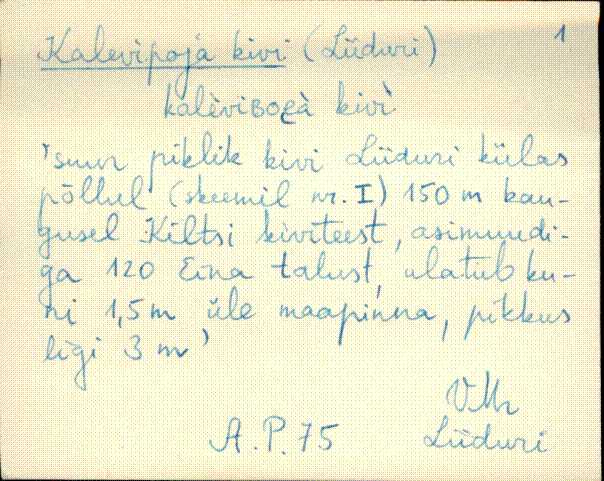 Kalevipoja kivi (Liiduri) 1
kalèviBoεà kivì
'suur piklik kivi Liiduri külas
põllul (skeemil nr. I) 150 m kau-
gusel Kiltsi kiviteest, asimuudi-
ga 120 Eina talust, ulatub ku-
ni 1,5 m üle maapinna, pikkus
ligi 3 m'
VMr
A.P.75 Liiduri